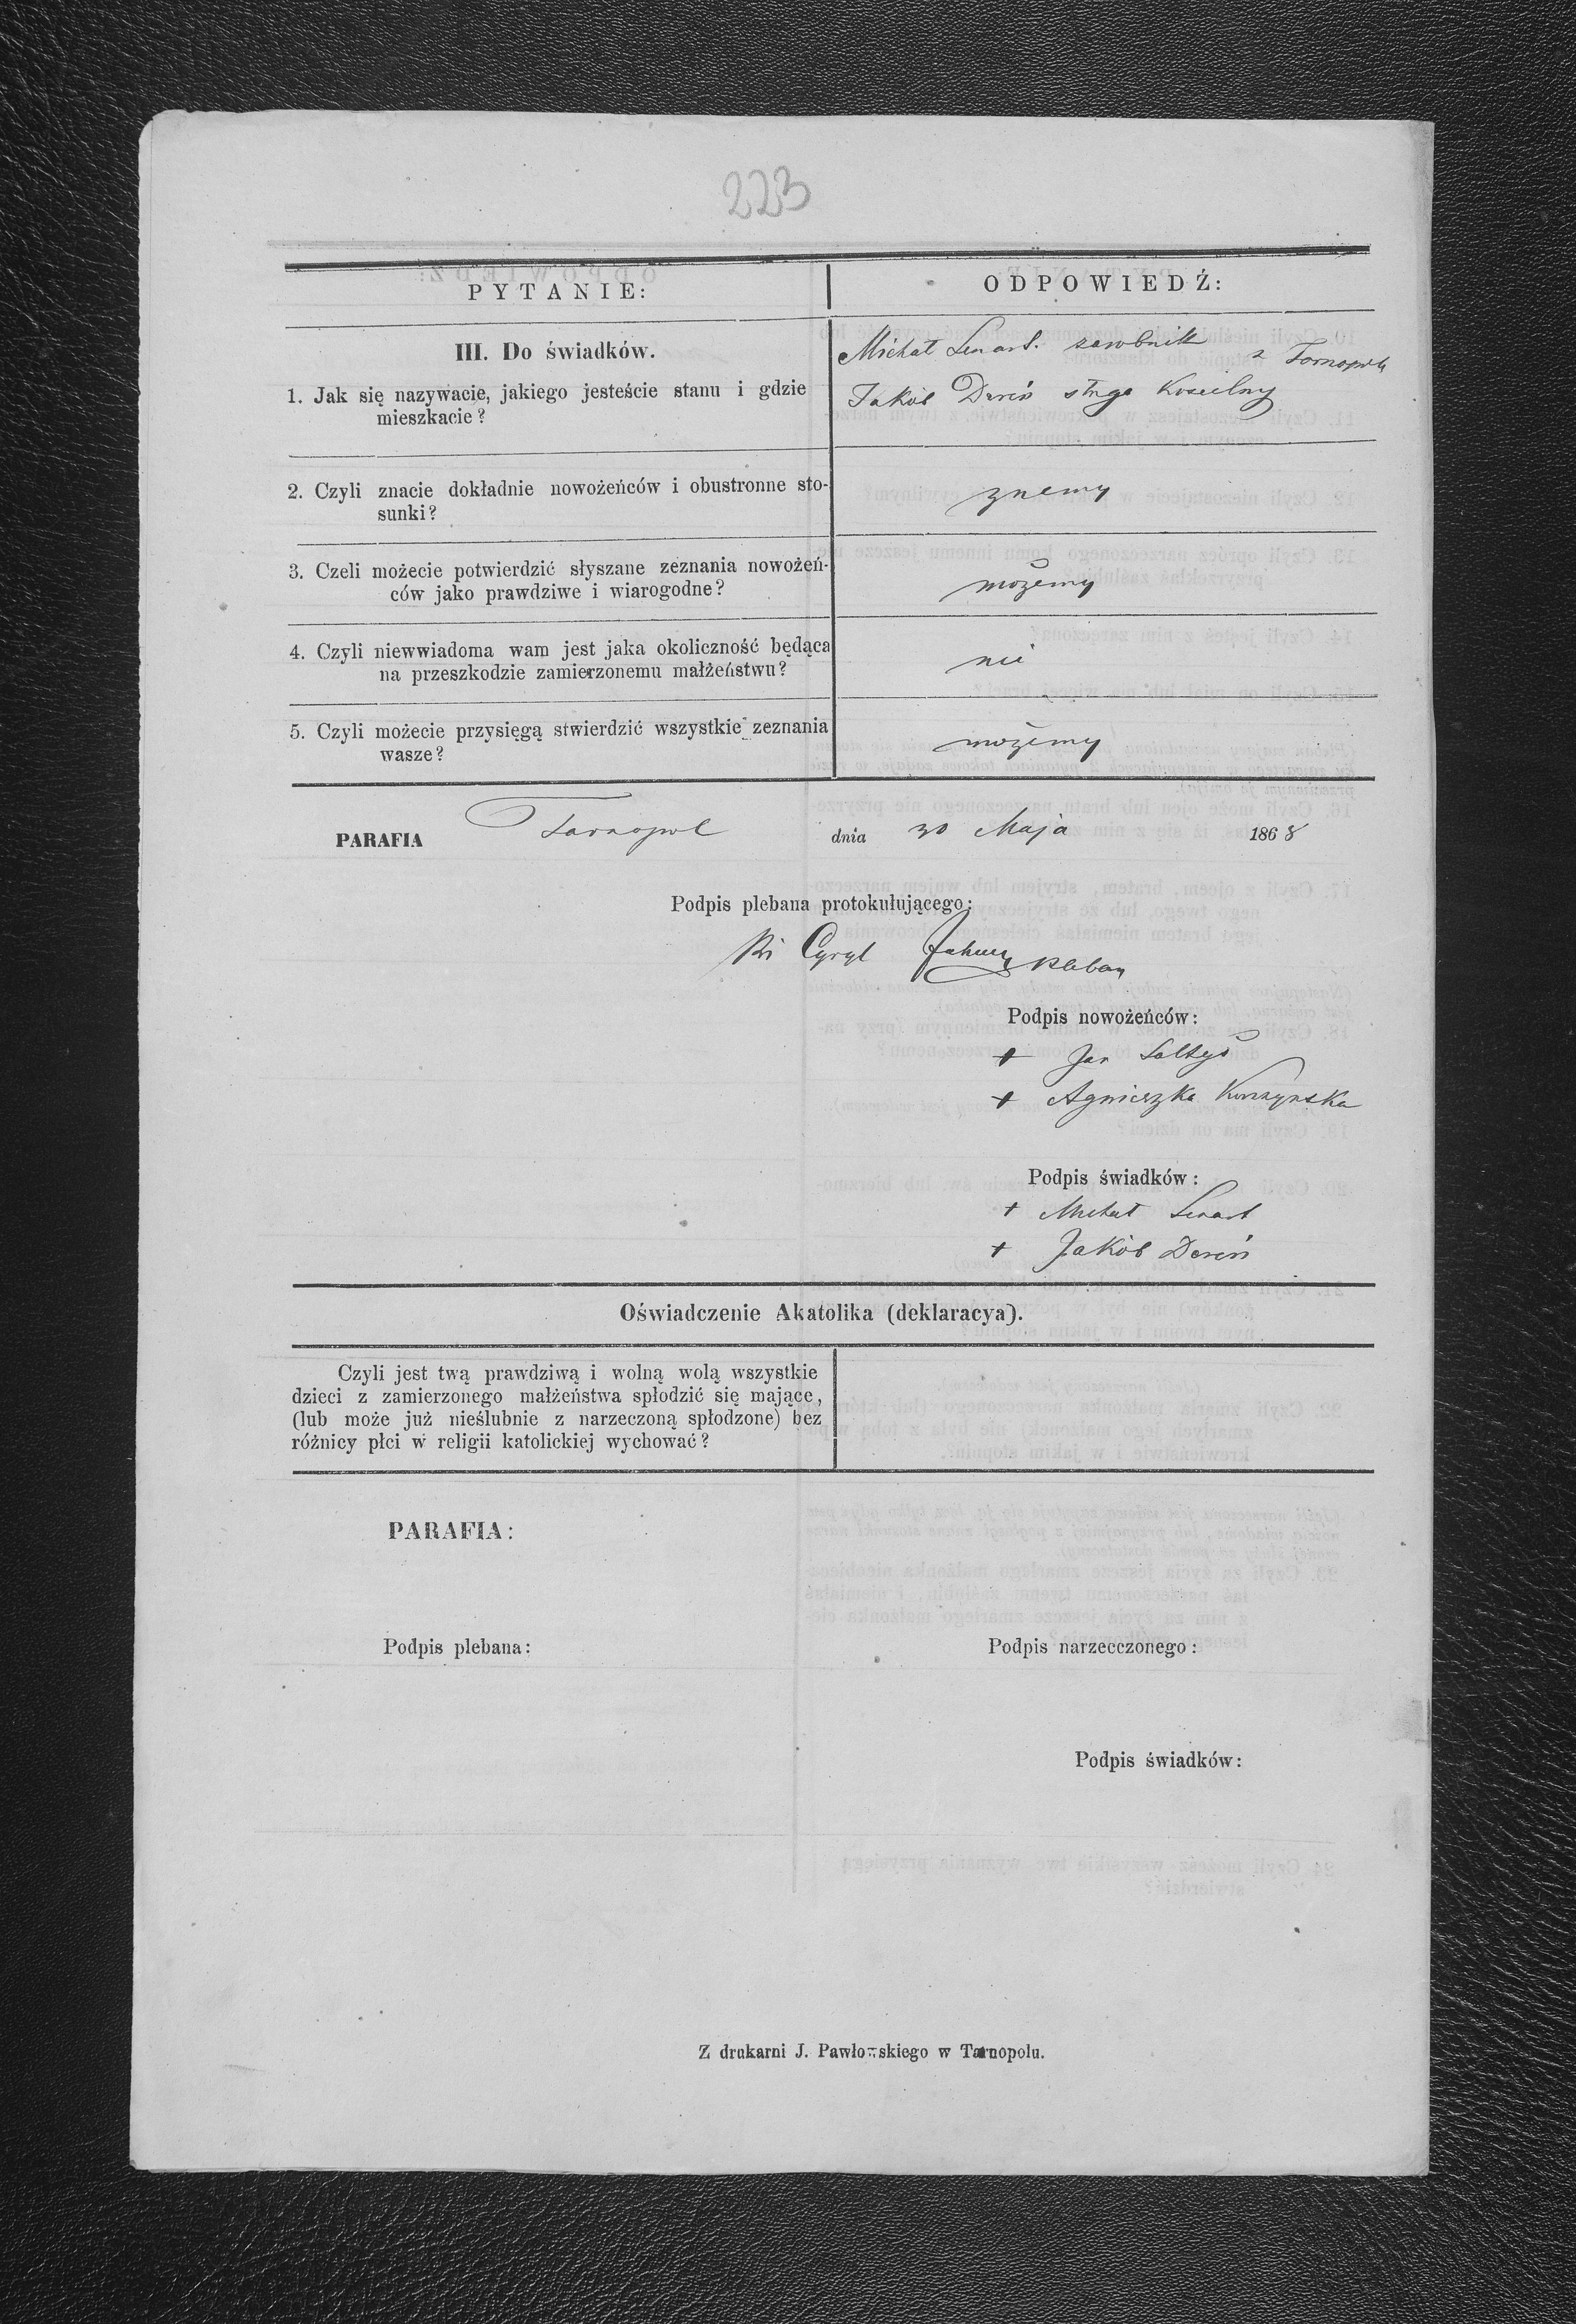 223
PYTANIE:
ODPOWIEDŹ:
III. Do świadków.
1. Jak się nazywacie, jakiego jesteście stanu i gdzie
mieszkacie?
Michał Lenart. zarobnik z Tarnopola
Jakób Dereń sługa Koscielny
2. Czyli znacie dokładnie nowożeńców i obustronne sto-
sunki?
znamy
3. Czeli możecie potwierdzić słyszane zeznania nowożeń-
ców jako prawdziwe i wiarogodne?
możemy
4. Czyli niewwiadoma wam jest jaka okoliczność będąca
na przeszkodzie zamierzonemu małżeństwu?
nie
5. Czyli możecie przysięgą stwierdzić wszystkie zeznania
wasze?
możemy
PARAFIA Tarnopol dnia 30 Maja 1868
Podpis plebana protokułującego:
Cyryl pleban
Podpis nowożeńców:
+ Jan Sołtys
+ Agnieszka
Podpis świadków:
+ Michał Lenart
+ Jakób Dereń
Oświadczenie Akatolika (deklaracya).
Czyli jest twą prawdziwą i wolną wolą wszystkie
dzieci z zamierzonego małżeństwa spłodzić się mające,
(lub może już nieślubnie z narzeczoną spłodzone) bez
różnicy płci w religii katolickiej wychować?
PARAFIA:
Podpis plebana:
Podpis narzecczonego:
Podpis świadków:
Z drukarni J. Pawłowskiego w Tarnopolu.